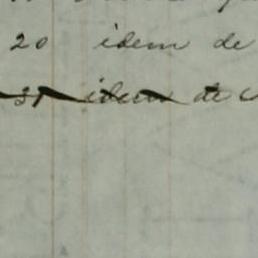 20 idem de
31 idem de